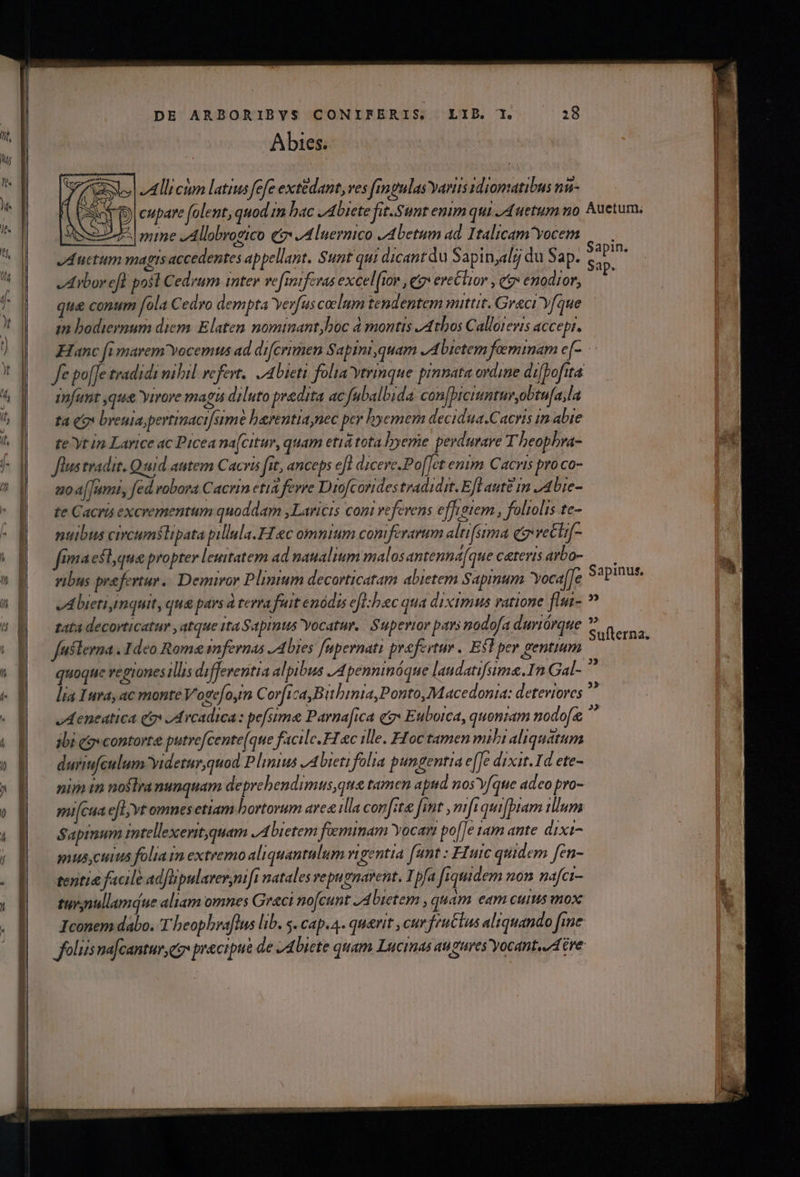 DE ARBORIBVS CONIFERIS. LIB. I. 28
Abies.
Alli cùm latius ſeſe extēdant, res ſingulas variis idiomatibus nū-
cupare ſolent, quod in hac Abiete fit. Sunt enim qui Auetum no Auetum.
mine Allobrogico & Aluernico Abetum ad Italicam vocem
Auctum magis accedentes appellant. Sunt qui dicant du Sapin, alij du Sap. Sapin.
Sap.
Arbor eſt post Cedrum inter reſiniferas excelſior, & erectior, & enodior,
quæ conum ſola Cedro dempta verſus cœlum tendentem mittit. Græci vſque
in hodiernum diem Elaten nominant, hoc à montis Athos Calloieris accepi.
Hanc ſi marem vocemus ad diſcrimen Sapini, quam Abietem fœminam eſ-
ſe poſſe tradidi nihil refert. Abieti folia vtrinque pinnata ordine diſpoſita
inſunt, quæ virore magis diluto prædita ac ſubalbida conſpiciuntur, obtuſa, la
ta & breuia, pertinaciſsimè hærentia, nec per hyemem decidua. Cacris in abie
te vt in Larice ac Picea naſcitur, quam etiā tota hyeme perdurare Theophra-
ſtus tradit. Quid autem Cacris ſit, anceps eſt dicere. Poſſet enim Cacris pro co-
no aſſumi, ſed robora Cacrin etiā ferre Dioſcorides tradidit. Eſt autē in Abie-
te Cacris excrementum quoddam, Laricis coni referens effigiem, foliolis te-
nuibus circumstipata pillula. Hæc omnium coniferarum altiſsima & rectiſ-
ſima est, quæ propter leuitatem ad naualium malos antennáſque cæteris arbo-
ribus præfertur. Demiror Plinium decorticatam abietem Sapinum vocaſſe Sapinus.
Abieti, inquit, quæ pars à terra fuit enodis eſt: hæc qua diximus ratione flui- ”
tata decorticatur, atque ita Sapinus vocatur. Superior pars nodoſa duriórque ”
Suſterna.
fusterna. Ideo Romæ infernas Abies ſupernati præfertur. Est per gentium
quoque regiones illis differentia alpibus Apenninóque laudatiſsimæ. In Gal- ”
lia Iura, ac monte Vogeſo, in Corſica, Bithinia, Ponto, Macedonia: deteriores ”
Aeneatica & Arcadica: peſsimæ Parnaſica & Euboica, quoniam nodoſæ ”
ibi & contortæ putreſcenteſque facile. Hæc ille. Hoc tamen mihi aliquātum
duriuſculum videtur, quod Plinius Abieti folia pungentia eſſe dixit. Id ete-
nim in nostra nunquam deprehendimus, quæ tamen apud nos vſque adeo pro-
miſcua eſt, vt omnes etiam hortorum areæ illa conſitæ ſint, niſi quiſpiam illum
Sapinum intellexerit, quam Abietem fœminam vocari poſſe iam ante dixi-
mus, cuius folia in extremo aliquantulum rigentia ſunt: Huic quidem ſen-
tentiæ facilè adſtipularer, niſi natales repugnarent. Ipſa ſiquidem non naſci-
tur, nullamque aliam omnes Græci noſcunt Abietem, quàm eam cuius mox
Iconem dabo. Theophraſtus lib. 5. cap. 4. quærit, cur fructus aliquando ſine
foliis naſcantur, & præcipuè de Abiete quam Lucinas augures vocant. Aëre